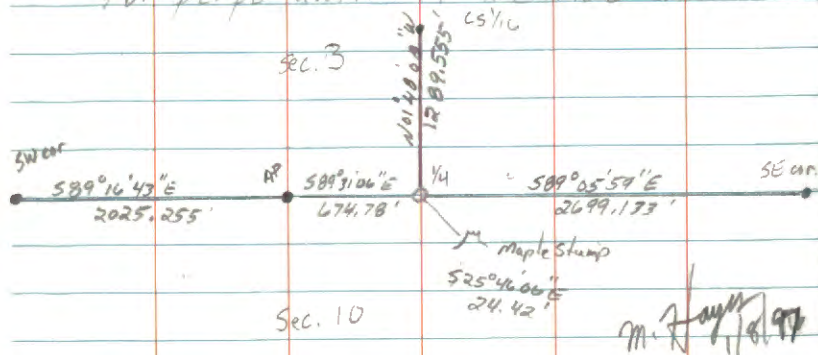 CS 1/16
Sec. 3
N01°48'08"W
1289.555'
SW cor
S89°16'43"E
2025.255'
AP
S89°31'06"E
674.78'
1/4
S89°05'59"E
2699.173'
SE cor.
Maple Stump
S25°46'06"E
24.42'
Sec. 10
M. Hayes 1/8/97